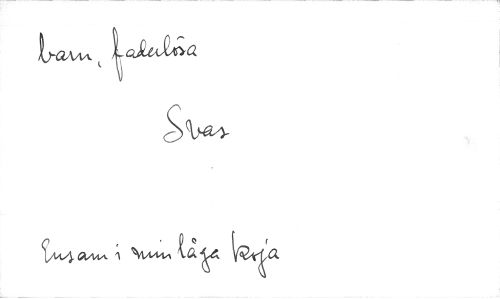 barn, faderlösa
Svas
Ensam i min låga koja